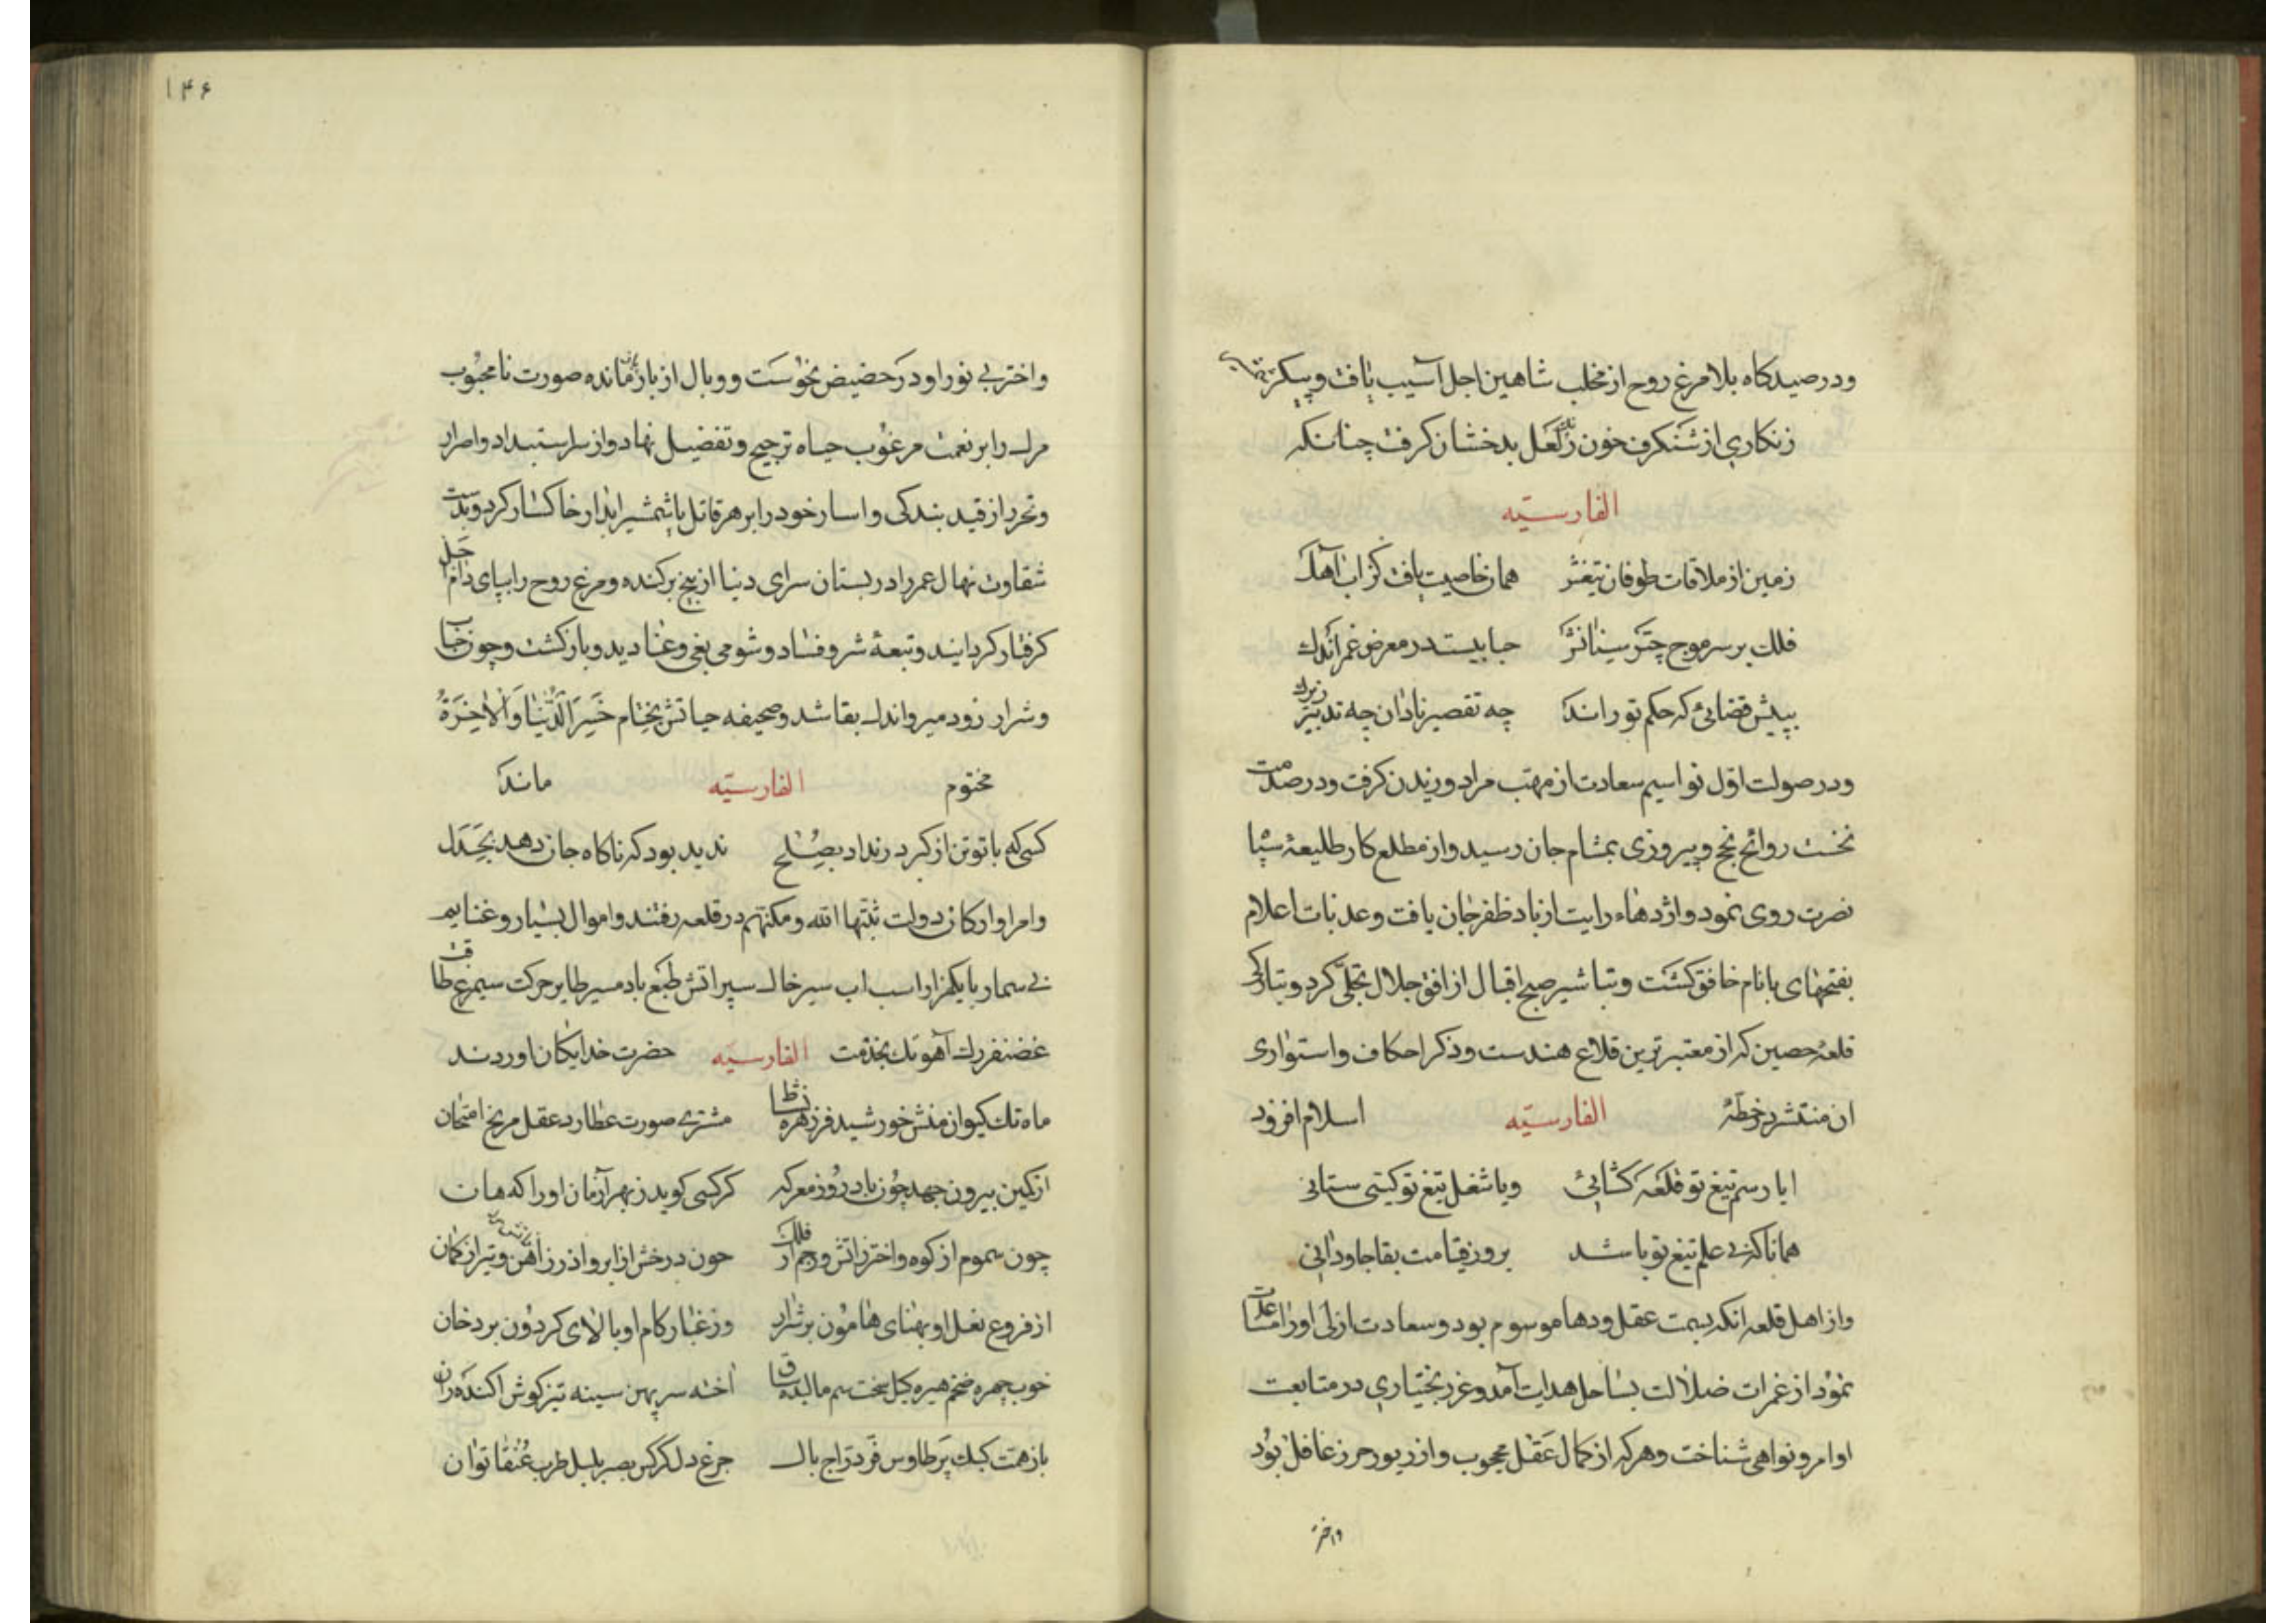 ودر صیدکاه بلا مرغ روح از مخلب شاهین اجل آسیب یافت و پیکر تیغ
زنکاری از شنکرف خون رنک لعل بدخشان کرفت چنانکه
الفارسیّه
زمین از ملاقات طوفان تیغش همان خاصیت یافت کز آب آهک
فلک بر سر موج چتر سنانش حبابیست در معرض عمر اندک
بپیش قضائی که حکم تو راند چه تقصیر نادان چه تدبیر زیرک
ودر صولت اوّل نواسیم سعادت از مهبّ مراد وزیدن کرفت ودر صدمت
نخست روائح نجح و پیروزی بمشام جان رسید واز مطلع کار طلیعهٔ
نصرت روی نمود واژدهاء رایت از باد ظفر جان یافت وعذبات اعلام
بفتحهای بانام خافق کشت وتباشیر صبح اقبال از افق جلال تجلّی کرد
قلعهٔ حصین که از معتبرترین قلاع هندست وذکر احکام واستواری
ان منتشر در خطّهٔ الفارسیّه اسلام افزود
ایا رسم تیغ تو قلعه کشائی ویا شغل تیغ تو کیتی ستانی
همانا کزی علم تیغ تو باشد بروز قیامت بقا جاودانی
واز اهل قلعه انکه بسمت عقل ودها موسوم بود وسعادت ازلی اورا مساعدت
نمود از غمرات ضلالت بساحل هدایت آمد وعز بختیاری در متابعت
اوامر ونواهی شناخت وهرکه از کمال عقل محجوب واز زیور حرز غافل بود
واختر
۱۴۶
واختر بی نور او در حضیض نحوست ووبال از بازمانده صورت نامحبوب
مرک را بر نعمت مرغوب حیاه ترجیح وتفضیل نهاد واز سر استبداد واصرار
وتحرد از قید بندکی واسار خود را بر هر قاتل با شمشیر ابدار خاکسار کرد وبدست
شقاوت نهال عمر را در بستان سرای دنیا از بیخ برکنده ومرغ روح را بپای دام اجل
کرفتار کردانید وتبعهٔ شر وفساد وشومی بغی وعناد دید وبازکشت وچون حباب
وشرار زود میر واندک بقا شد وصحیفه حیاتش بختام خَسِرَ الدُّنْیَا وَالْاٰخِرَةَ
مختوم الفارسیّه ماند
کسی که با تو تن از کبر در نداد بصلح ندید بود که ناکاه جان دهد بجدل
وامرا وارکان دولت ثبّتها الله ومکنتهم در قلعه رفتند واموال بسیار وغنایم
بی سمار با یکهزار اسب اب سیر خاک سپر اتش طبع باد مسیر طایر حرکت سیمرغ طاقت
غضنفر رک آهو تک بخدمت الفارسیّه حضرت خدایکان اوردند
ماه تک کیوان منش خورشید فر زهره نشاط مشتری صورت عطارد عقل مریخ امتحان
از کمین بیرون جهد چون باد در روز معرکه کر کسی کوید ز بهر آزمان اورا که هان
چون سموم از کوه واختر ز اتش وجم از فلک حون درخش از ابر واذر ز اهن وتیر از کمان
از فروغ نعل او بهنای هامون بر شرار وز غبار کام او بالای کردون بر دخان
خوب چهره ضخم هیره کپل سخت سم مالیده ساق اخته سر پهن سینه تیز کوش اکنده ران
باز همت کبک پر طاوس فر درّاج بال جرغ دل کرکس بصر بلبل طرب عُنقا توان